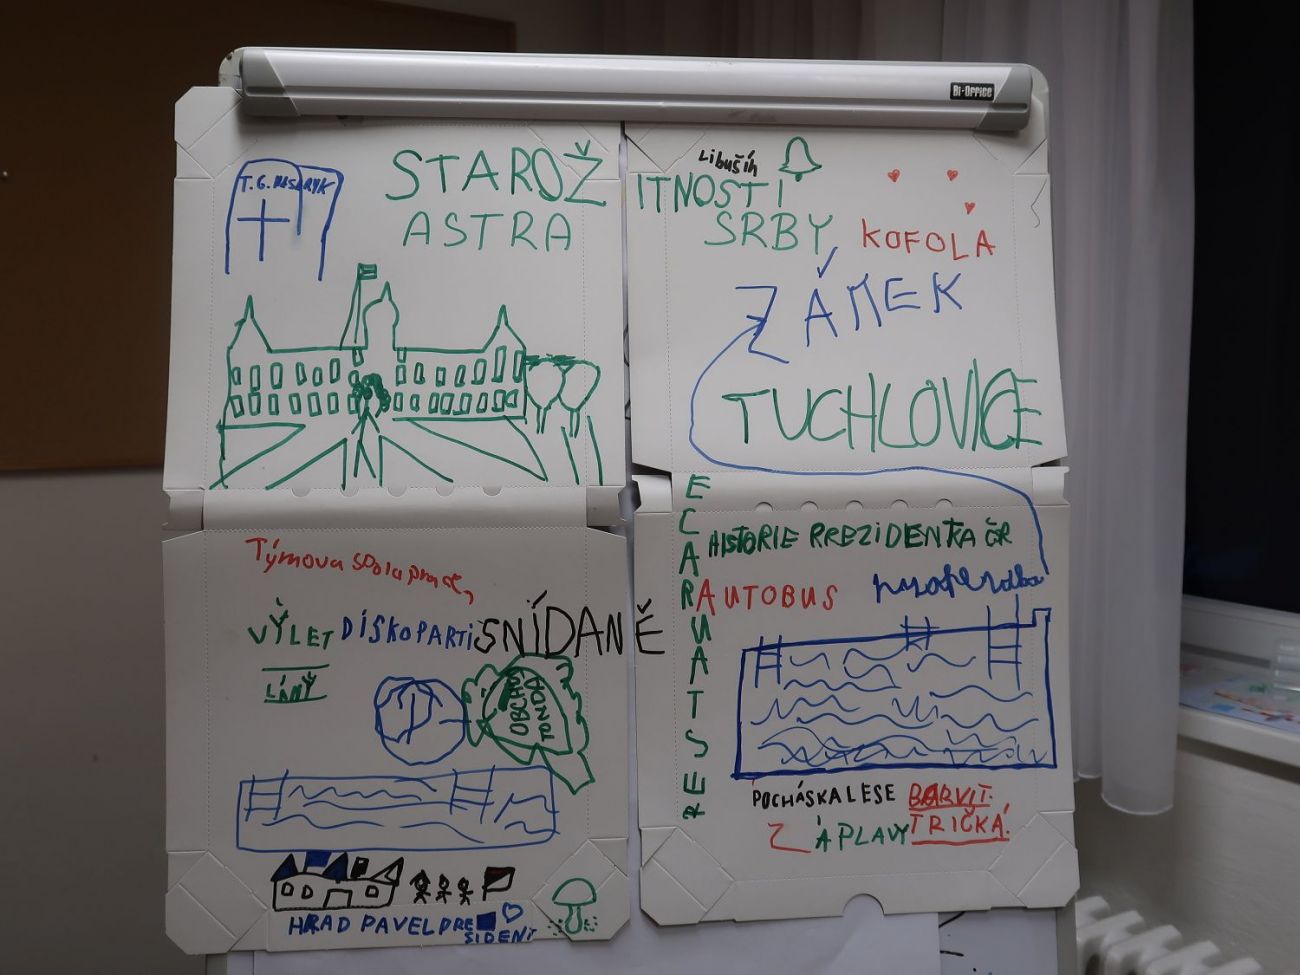 Bi-Office
T. G. MASARYK
STAROŽ
ITNOSTI
ASTRA
Libušín
SRBY
KOFOLA
ZÁMEK
TUCHLOVICE
Týmova
VÝLET
DISKOPARTI
SNÍDANĚ
LÁNY
OBCHŮ
HRAD PAVEL PRE
SIDENT
RESTAURACE
HISTORIE PREZIDENTA ČR
AUTOBUS
POCHÁSKA LESE
BARVIT
TRIČKÁ.
Z
ÁPLAVY